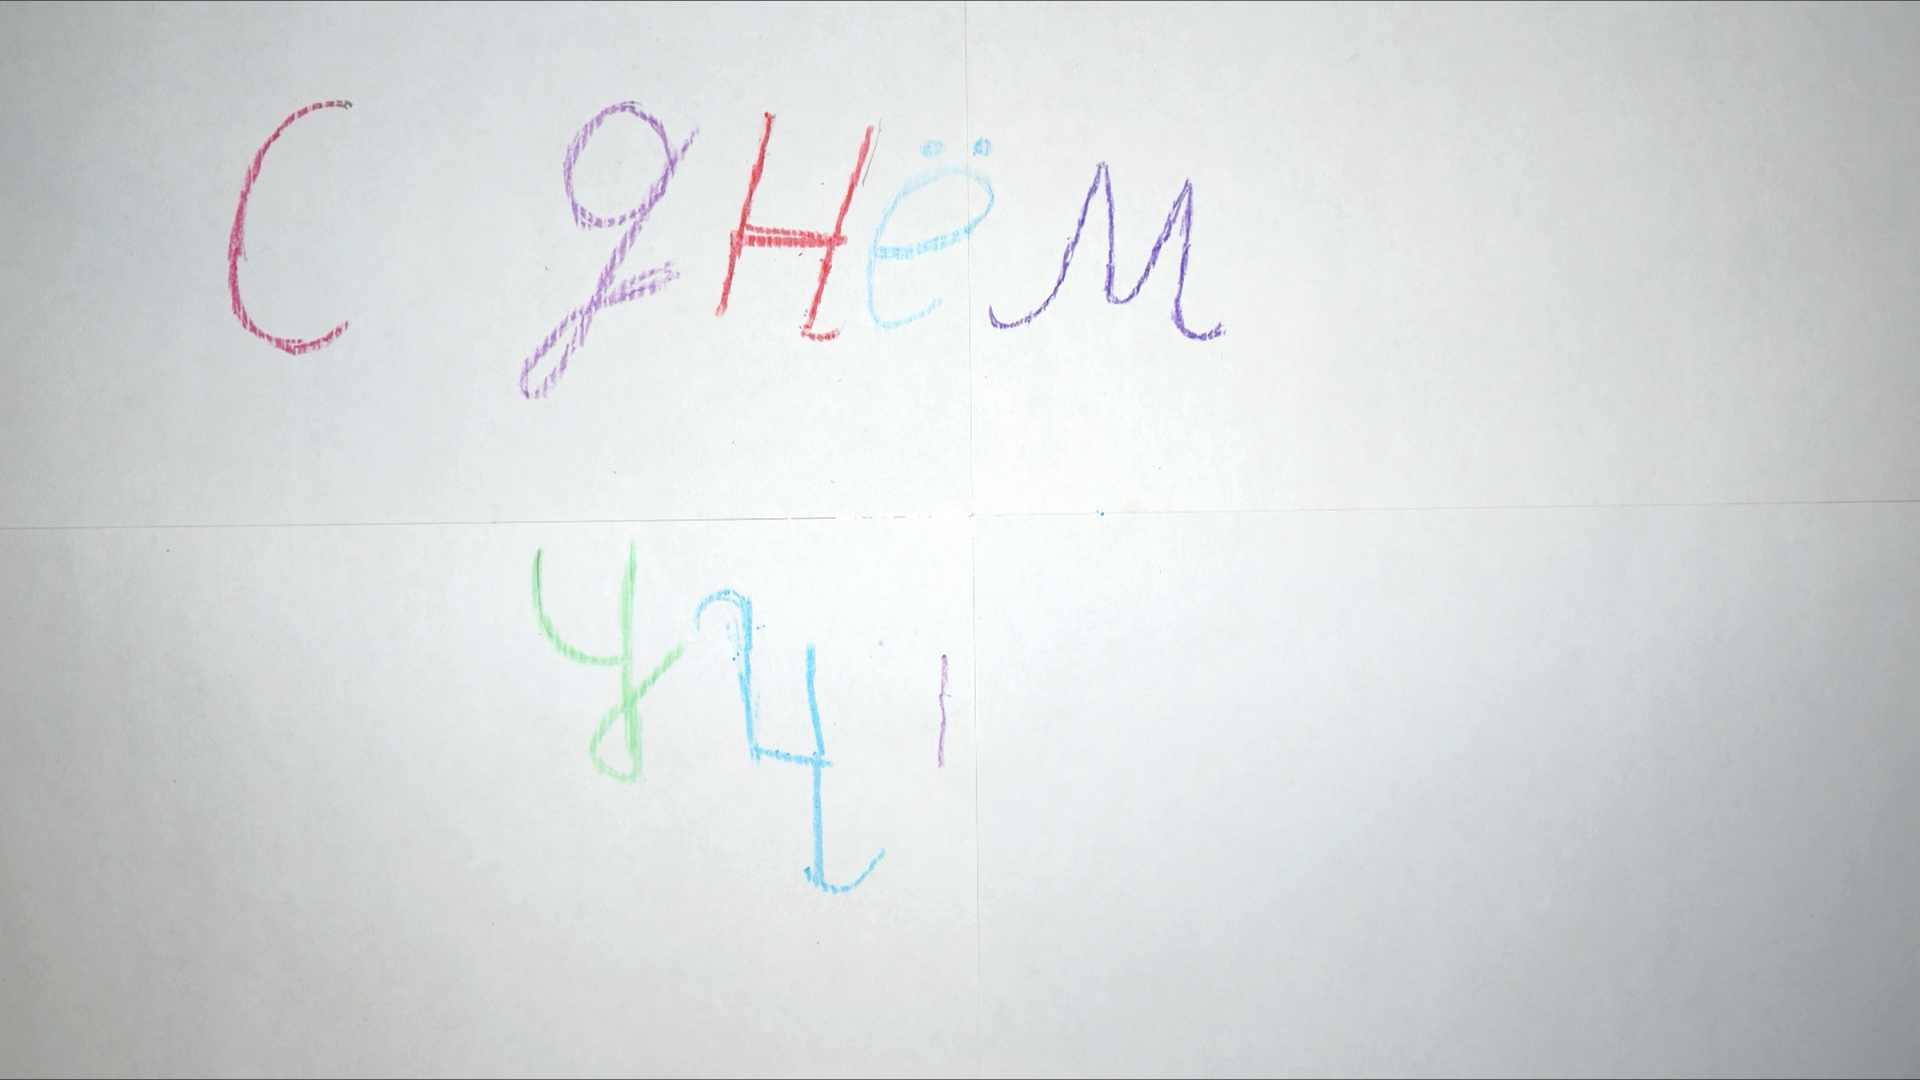 С днём
уч